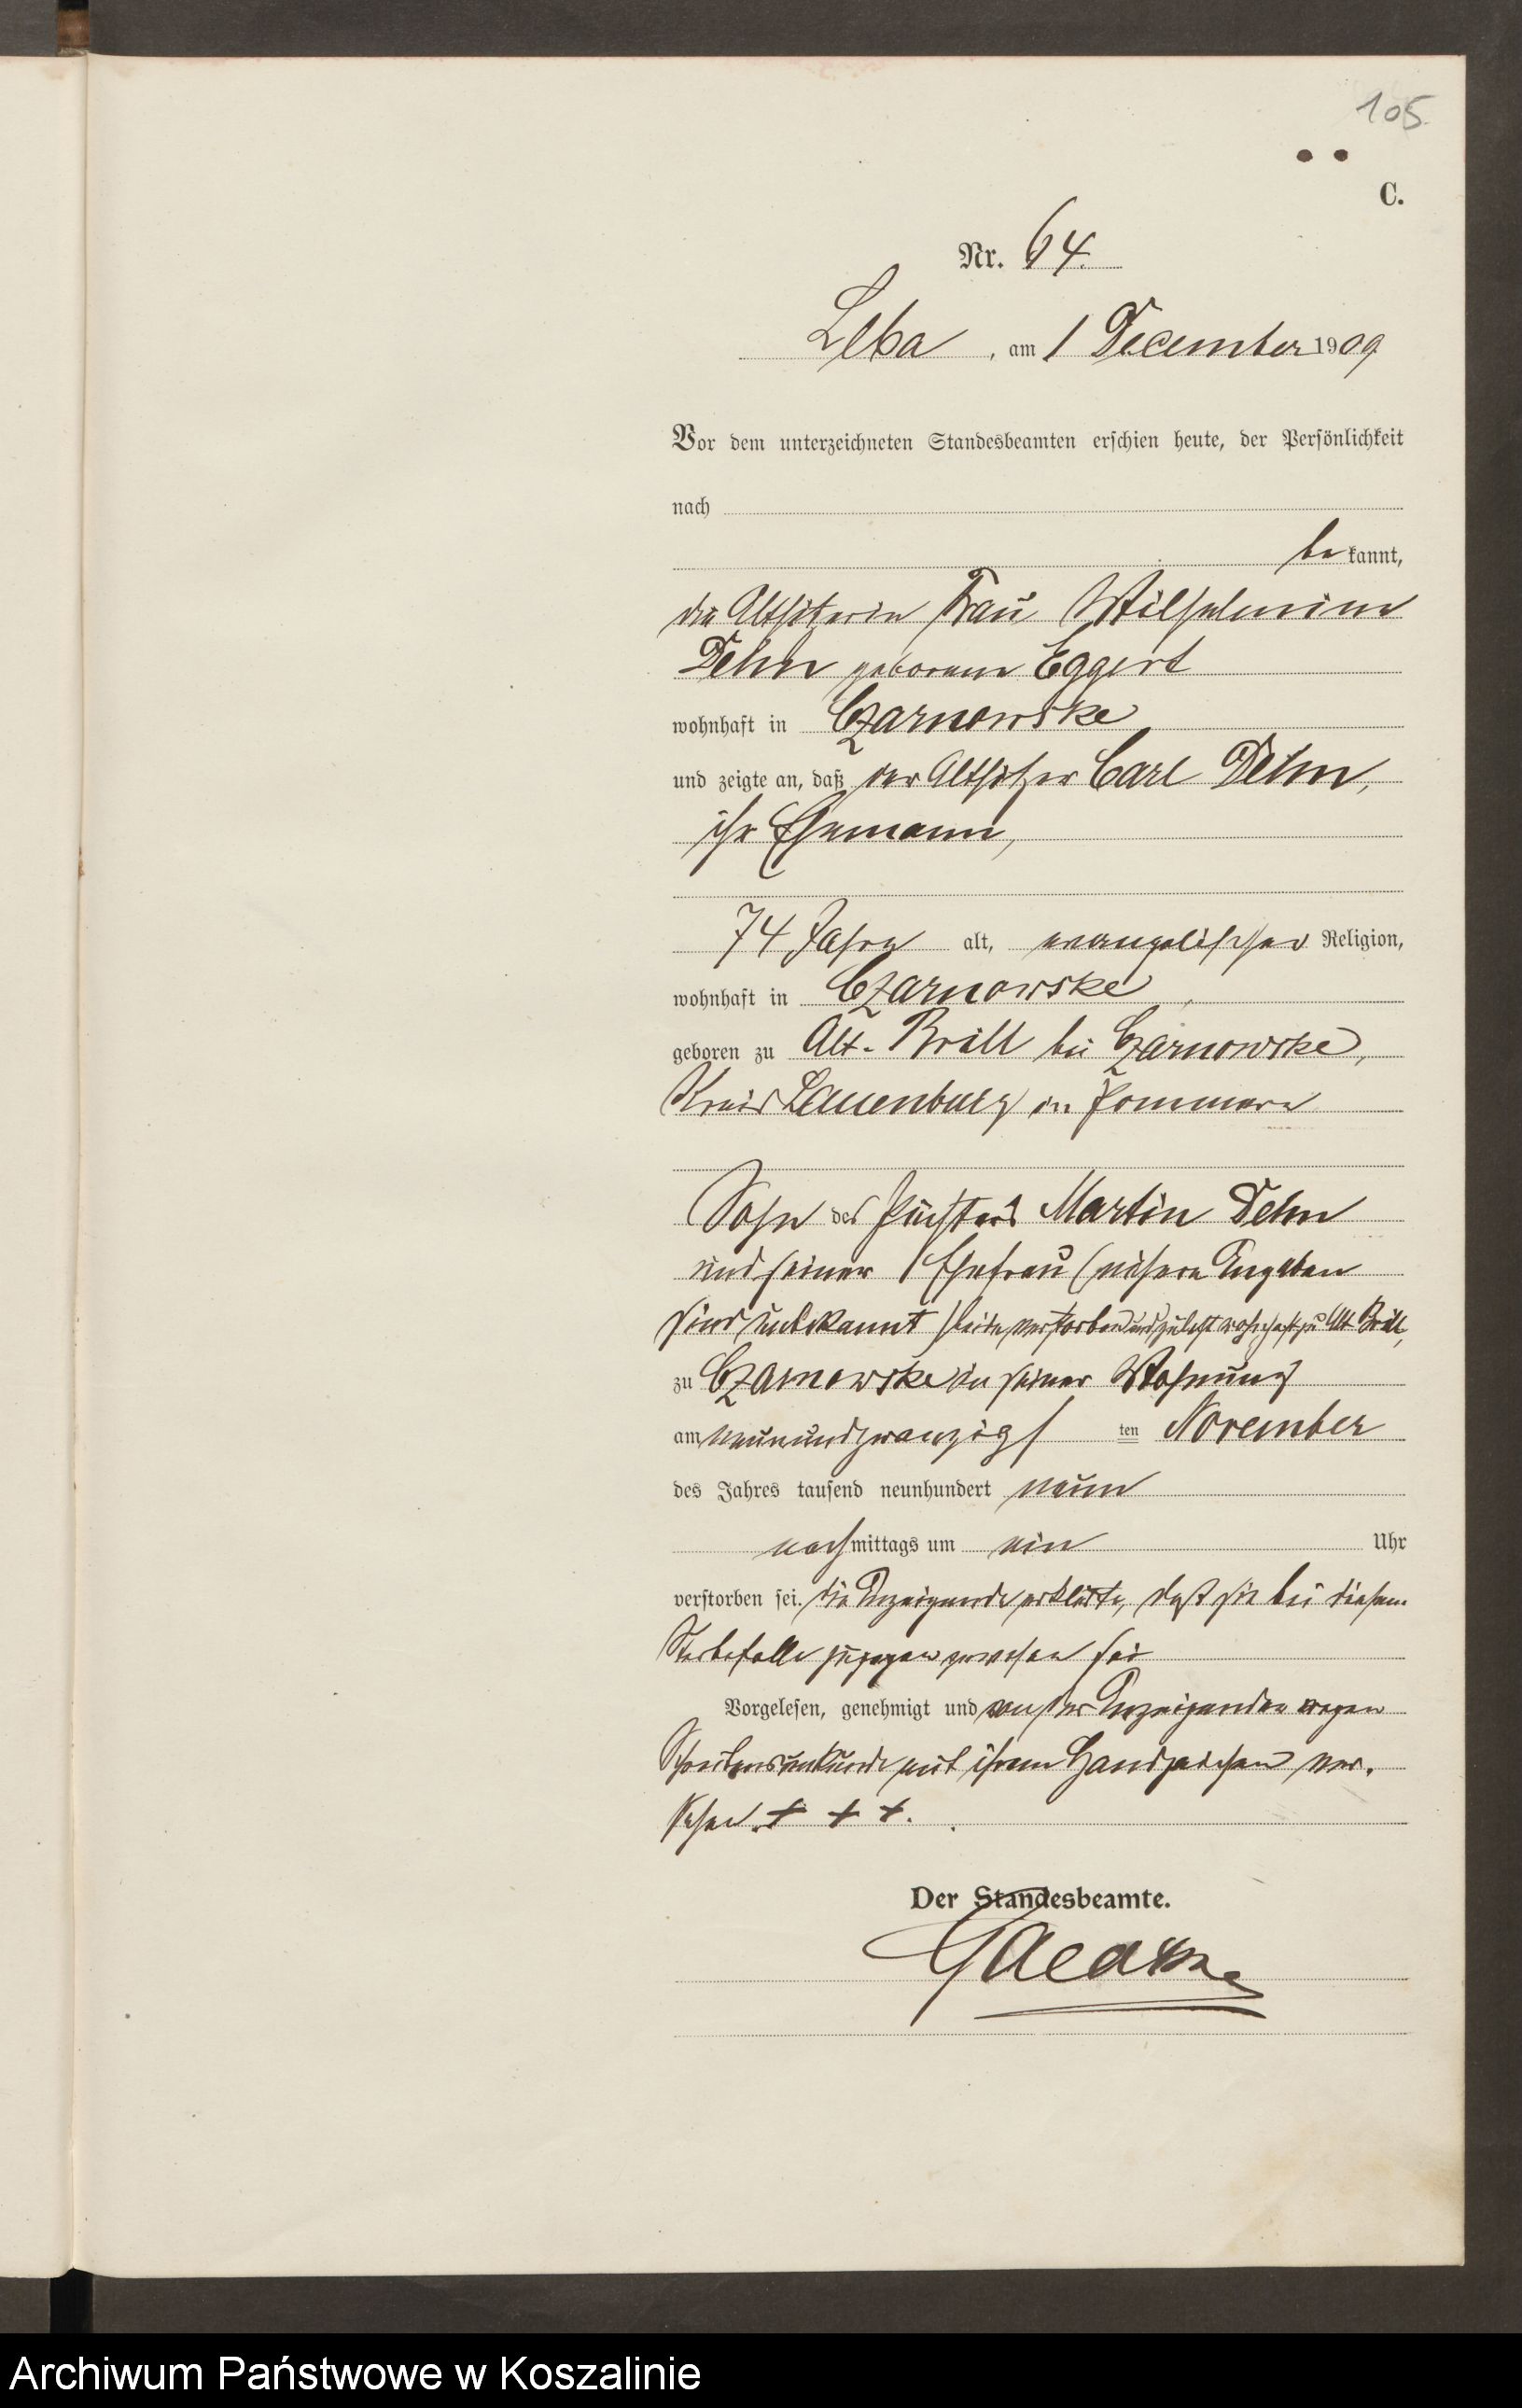 105
C.
Nr. 64.
Leba, am 1 December 1909
Vor dem unterzeichneten Standesbeamten erschien heute, der Persönlichkeit
nach
bekannt,
die Altsitzerin Frau Wilhelmine
Dehn geborene Eggert
wohnhaft in Czarnowske
und zeigte an, daß der Altsitzer Carl Dehn,
ihr Ehemann,
74 Jahre alt, evangelischer Religion,
wohnhaft in Czarnowske,
geboren zu Alt-Bröll bei Czarnowske,
Kreis Lauenburg in Pommern
Sohn des Martin Dehn
und seiner Ehefrau (nähere Angaben
sind unbekannt) beide verstorben und zuletzt wohnhaft zu Alt Bröll,
zu Czarnowske in seiner Wohnung
am neunundzwanzigsten November
des Jahres tausend neunhundert neun
nachmittags um ein Uhr
verstorben sei. Die Anzeigende erklärte, daß sie bei diesem
Sterbefalle zugegen gewesen sei
Vorgelesen, genehmigt und von der Anzeigenden wegen
Schreibensunkunde mit ihrem Handzeichen ver-
sehen. + + +.
Der Standesbeamte.
Archiwum Państwowe w Koszalinie